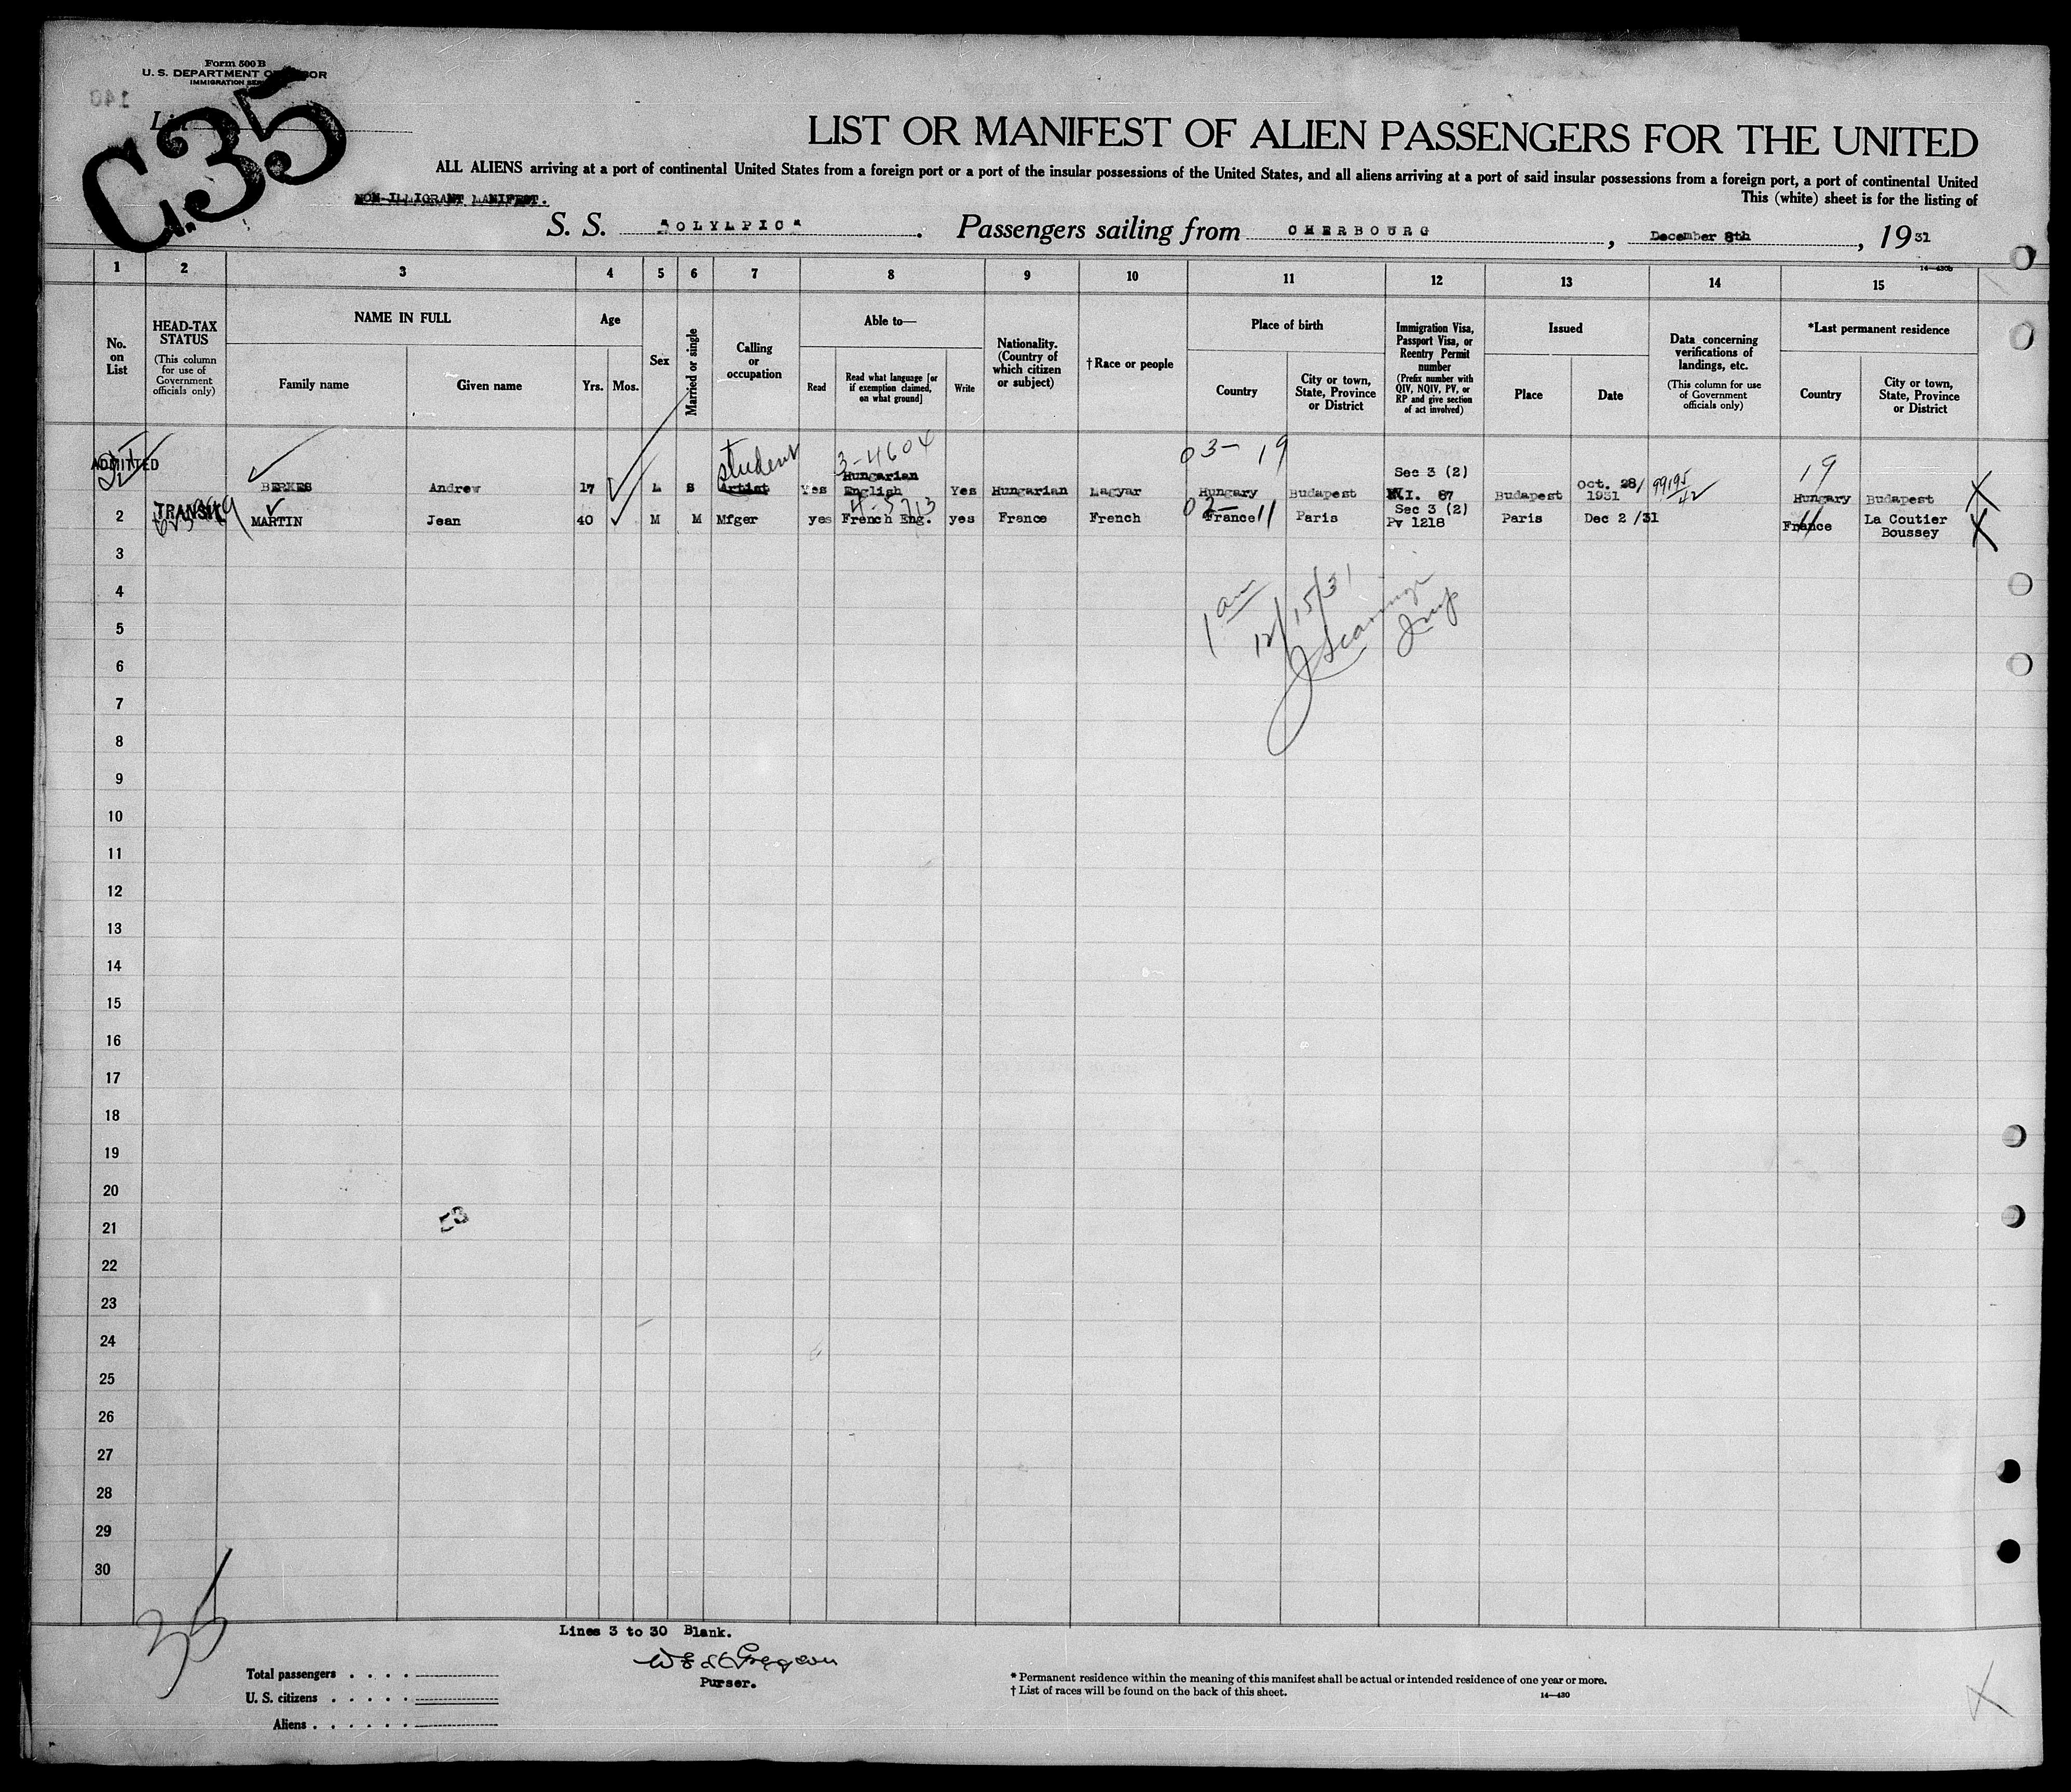 Form 500 B
U. S. DEPARTMENT OF LABOR
IMMIGRATION SERVICE
140
List
C.35
LIST OR MANIFEST OF ALIEN PASSENGERS FOR THE UNITED
ALL ALIENS arriving at a port of continental United States from a foreign port or a port of the insular possessions of the United States, and all aliens arriving at a port of said insular possessions from a foreign port, a port of continental United
This (white) sheet is for the listing of
S. S. "OLYMPIC". Passengers sailing from CHERBOURG, December 8th, 1931
14—430b
1 2 3 4 5 6 7 8 9 10 11 12 13 14 15
No. on List
HEAD-TAX STATUS
(This column for use of Government officials only)
NAME IN FULL
Family name
Given name
Age
Yrs. Mos.
Sex
Married or single
Calling or occupation
Able to—
Read
Read what language [or if exemption claimed, on what ground]
Write
Nationality. (Country of which citizen or subject)
†Race or people
Place of birth
Country
City or town, State, Province or District
Immigration Visa, Passport Visa, or Reentry Permit number
(Prefix number with QIV, NQIV, PV, or RP and give section of act involved)
Issued
Place
Date
Data concerning verifications of landings, etc.
(This column for use of Government officials only)
*Last permanent residence
Country
City or town, State, Province or District
student 3-4604 03- 19 19
ADMITTED Hungarian Sec 3 (2) Oct. 28/
BERKES Andrew 17 M S Artist Yes English Yes Hungarian Magyar Hungary Budapest 87 Budapest 1931 Hungary Budapest
TRANSIT 4-5713 02- 11 Sec 3 (2) 11
2 MARTIN Jean 40 M M Mfger yes French Eng. yes France French France Paris Pv 1218 Paris Dec 2 /31 France La Coutier Boussey
3
4
1 am 12/15/31
5
6
7
8
9
10
11
12
13
14
15
16
17
18
19
20
21
22
23
24
25
26
27
28
29
30
35
Lines 3 to 30 Blank.
Purser.
Total passengers . . . .
U. S. citizens . . . . .
Aliens . . . . . .
* Permanent residence within the meaning of this manifest shall be actual or intended residence of one year or more.
† List of races will be found on the back of this sheet.
14—430